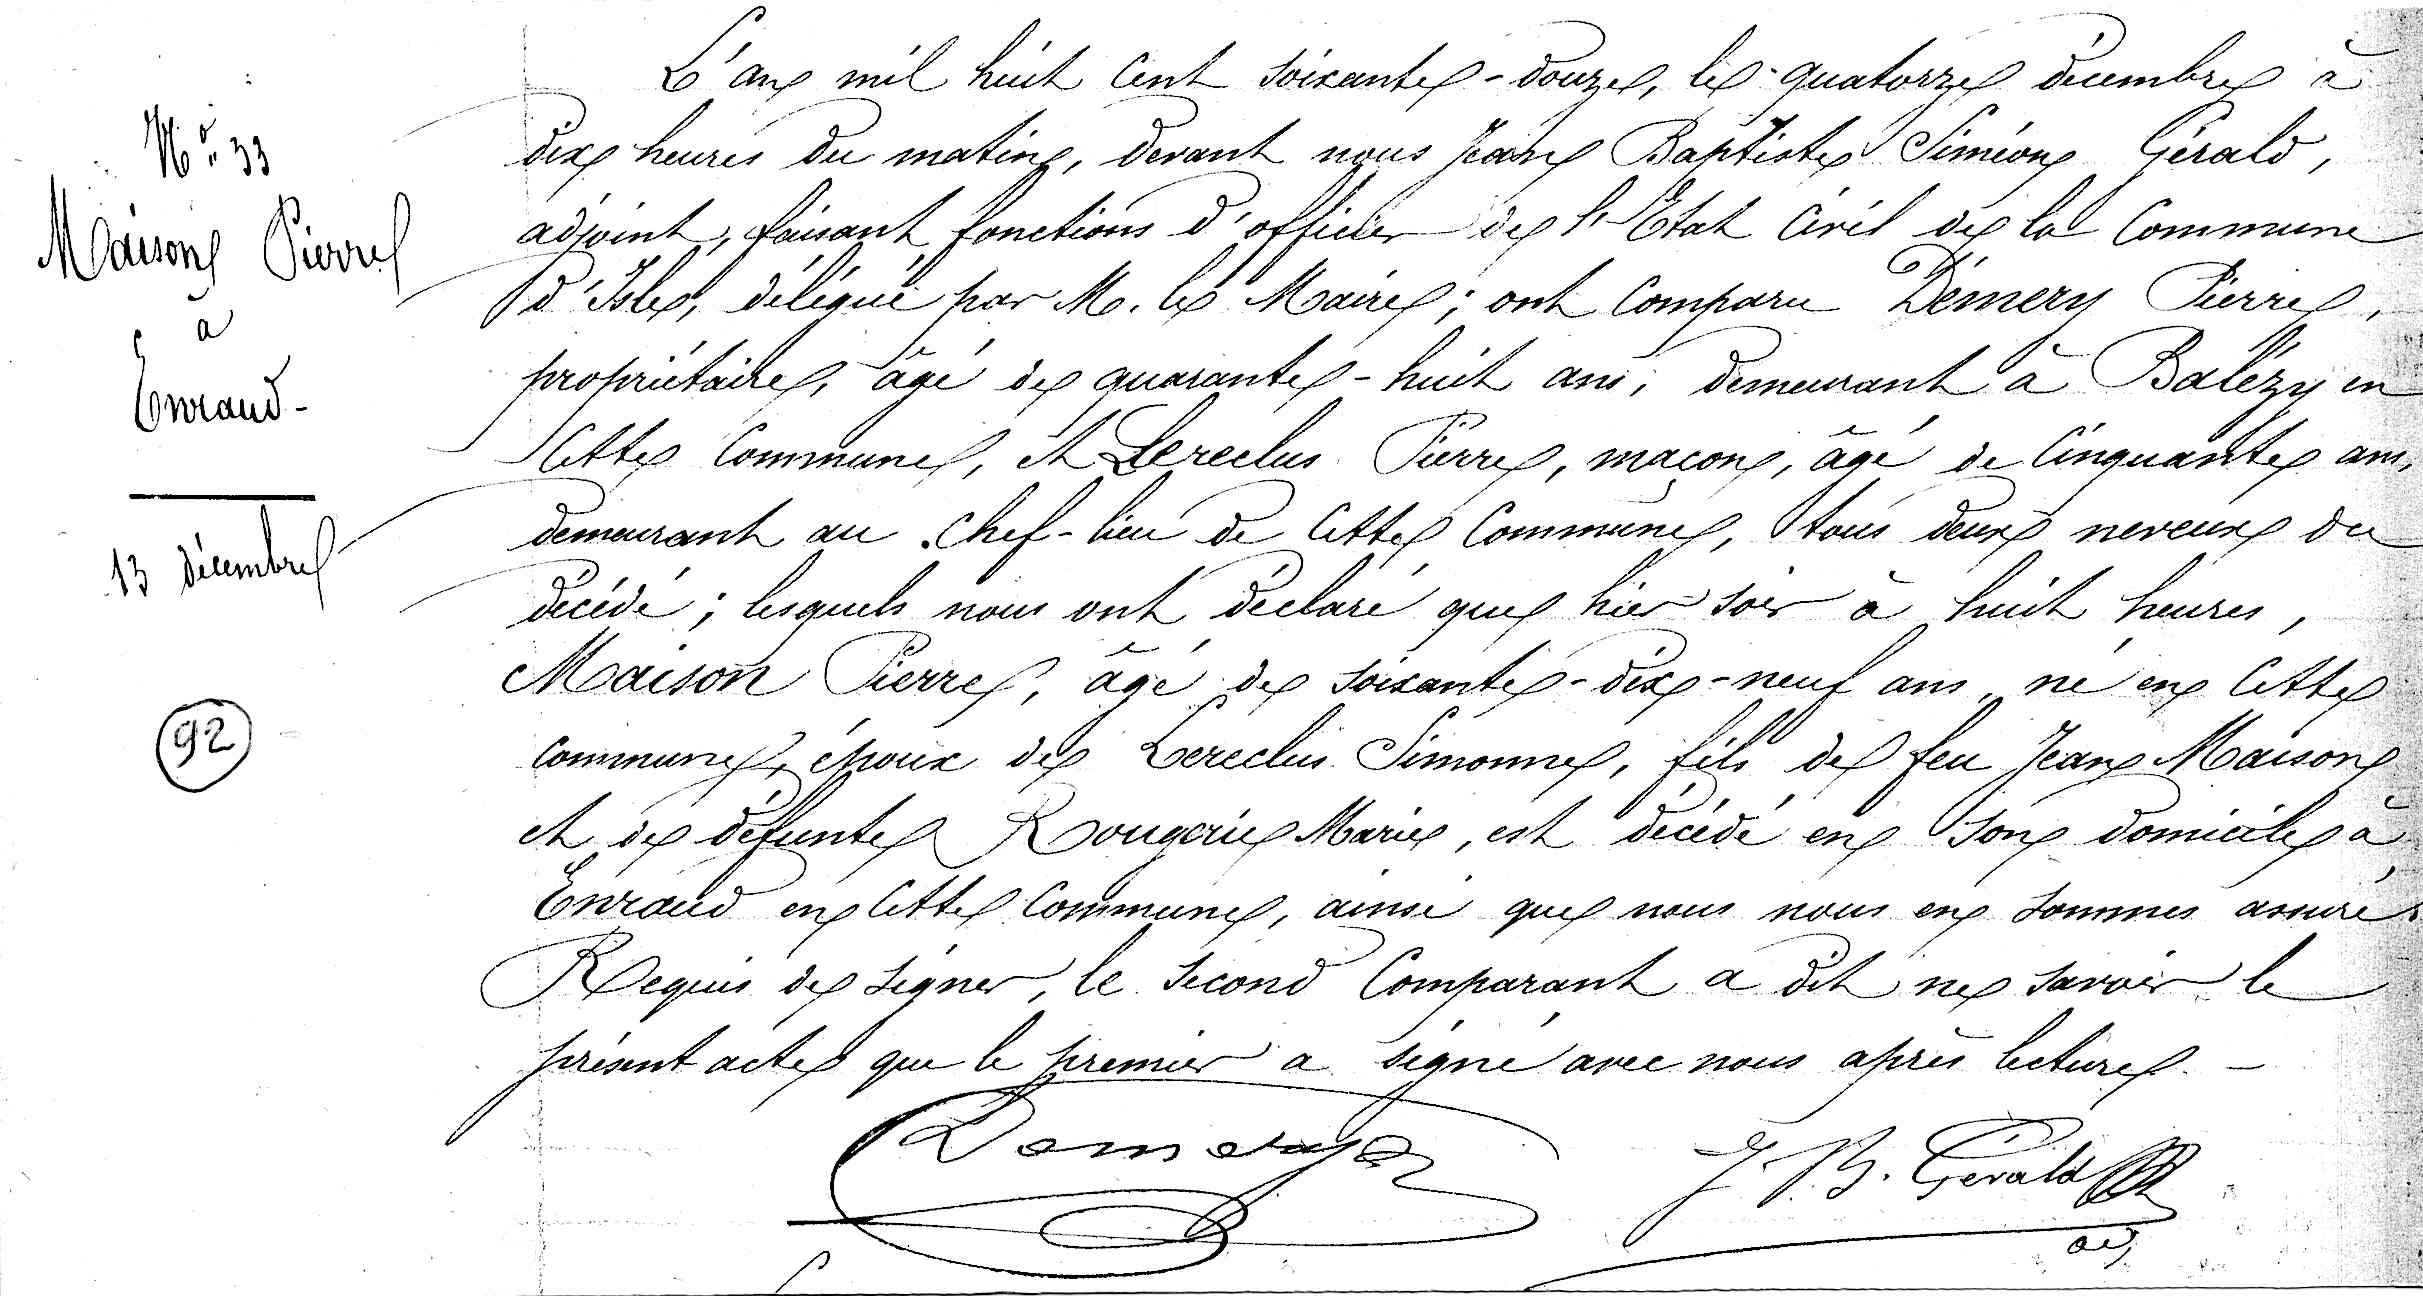 N° 33
Maison Pierre
à
Envaud -
13 décembre
92
L'an mil huit cent soixante-douze, le quatorze décembre à
dix heures du matin, devant nous Jean Baptiste Siméon Gérald,
adjoint, faisant fonctions d'officier de l'Etat Civil de la Commune
d'Isle, délégué par M. le Maire ; ont comparu Démery Pierre,
propriétaire, âgé de quarante-huit ans, demeurant à Balézy en
Cette Commune, et Lereclus Pierre, maçon, âgé de Cinquante ans,
demeurant au chef-lieu de Cette Commune, tous deux neveux du
décédé ; lesquels nous ont déclaré que hier soir à huit heures,
Maison Pierre, âgé de soixante-dix-neuf ans, né en Cette
Commune, époux de Lereclus Simonne, fils de feu Jean Maison
et de défunte Rougerie Marie, est décédé en son domicile à
Envaud en Cette Commune, ainsi que nous nous en sommes assuré.
Requis de signer, le second Comparant a dit ne savoir le
présent acte que le premier a signé avec nous après lecture. -
Demery
J. B. Gérald
adj